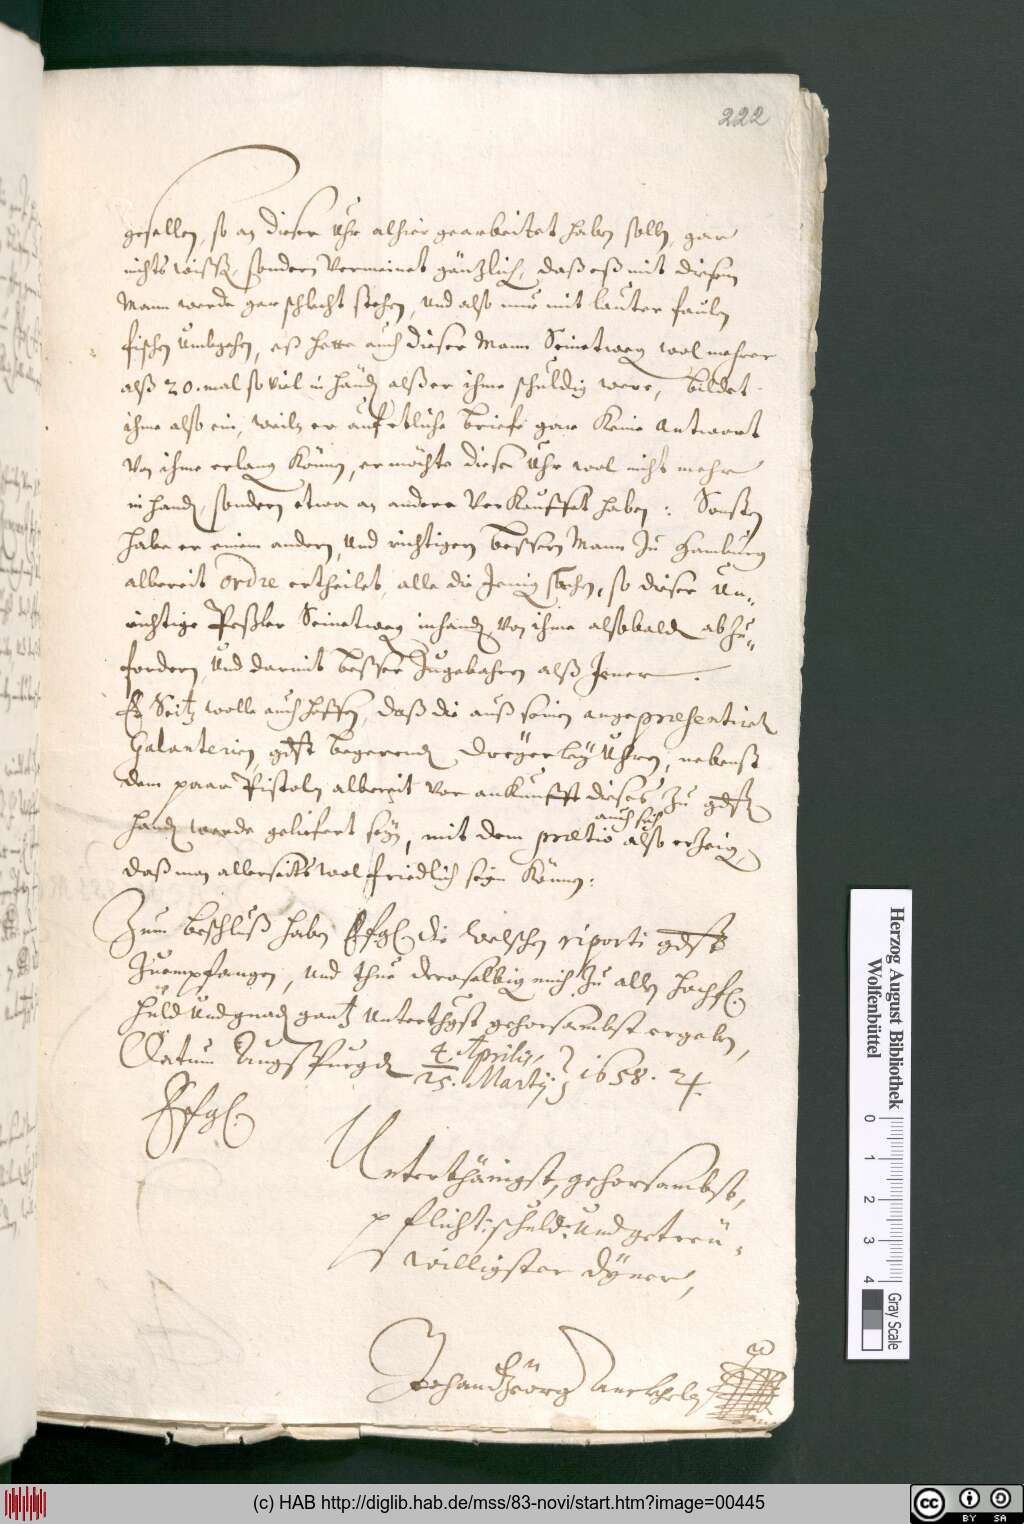 222
gesellen, so an dieser Uhr alhier gearbeitet haben sollen, gar
nichts wissen, sondern vermeinet gäntzlich, daß eß mit diesem
Mann werde gar schlecht stehen, und also nur mit lauter faulen
fischen umbgehen, eß hette auch dieser Mann Seinetweg wol mehrer
alß 20. mal so viel in händen alß er ihme schuldig were, bildet
ihme also ein, weiln er auf etliche briefe gar keine Antwort
von ihme erlang können, er möchte diese Uhr wol nicht mehr
in handen, sondern etwa an andere verkauffet haben: Sonsten
habe er einem andern, und richtigern bessern Mann zu Hamburg
albereit ordre ertheilet, alle die Jenig sachen, so dieser Un-
richtige Peßler Seinetweg inhanden von ihme alsobalden abzu-
fordern, und darmit besser Zugebahren alß Jener.
Hr Seitz wolle auch hoffen, daß die auß seinen angepræsentirten
Galanterien, gdst begerend dreyerley Uhren, nebenst
dem paar Pistolen albereit vor ankunfft dieses zu gdsten
handen werde geliefert seyn, mit dem prætio also erzeig
auch sich
daß man allerseits wol friedlich seyn können:
Zum beschluß haben Effgl. die welschen riporti gdst
Zuempfangen, und thue deroselbig mich zu allen hochfl.
huld und gnaden gantz Unterthgst gehorsambst ergeben,
Datum Augspurg den 4. Aprilis, 1658. 24.
25. Martij.
Effgl.
Unterthänigst, gehorsambst,
pflicht: schuld: und getreü-
willigster dyner,
Johann Geörg Anckhel
Herzog August Bibliothek
Wolfenbüttel
0 1 2 3 4
Gray Scale
(c) HAB http://diglib.hab.de/mss/83-novi/start.htm?image=00445
cc BY SA